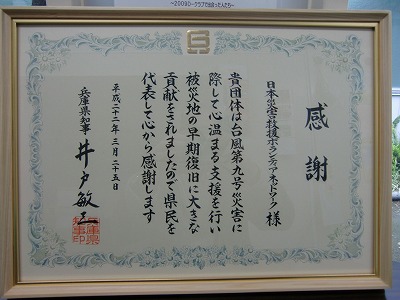 ~2009D-クラブで出会った人たち~
感謝
日本災害救援ボランティアネットワーク 様
貴団体は台風第九号災害に
際して心温まる支援を行い
被災地の早期復旧に大きな
貢献をされましたので県民を
代表して心から感謝します
平成二十二年 三月 二十五日
兵庫県知事 井戸敏三
兵庫県
知事印